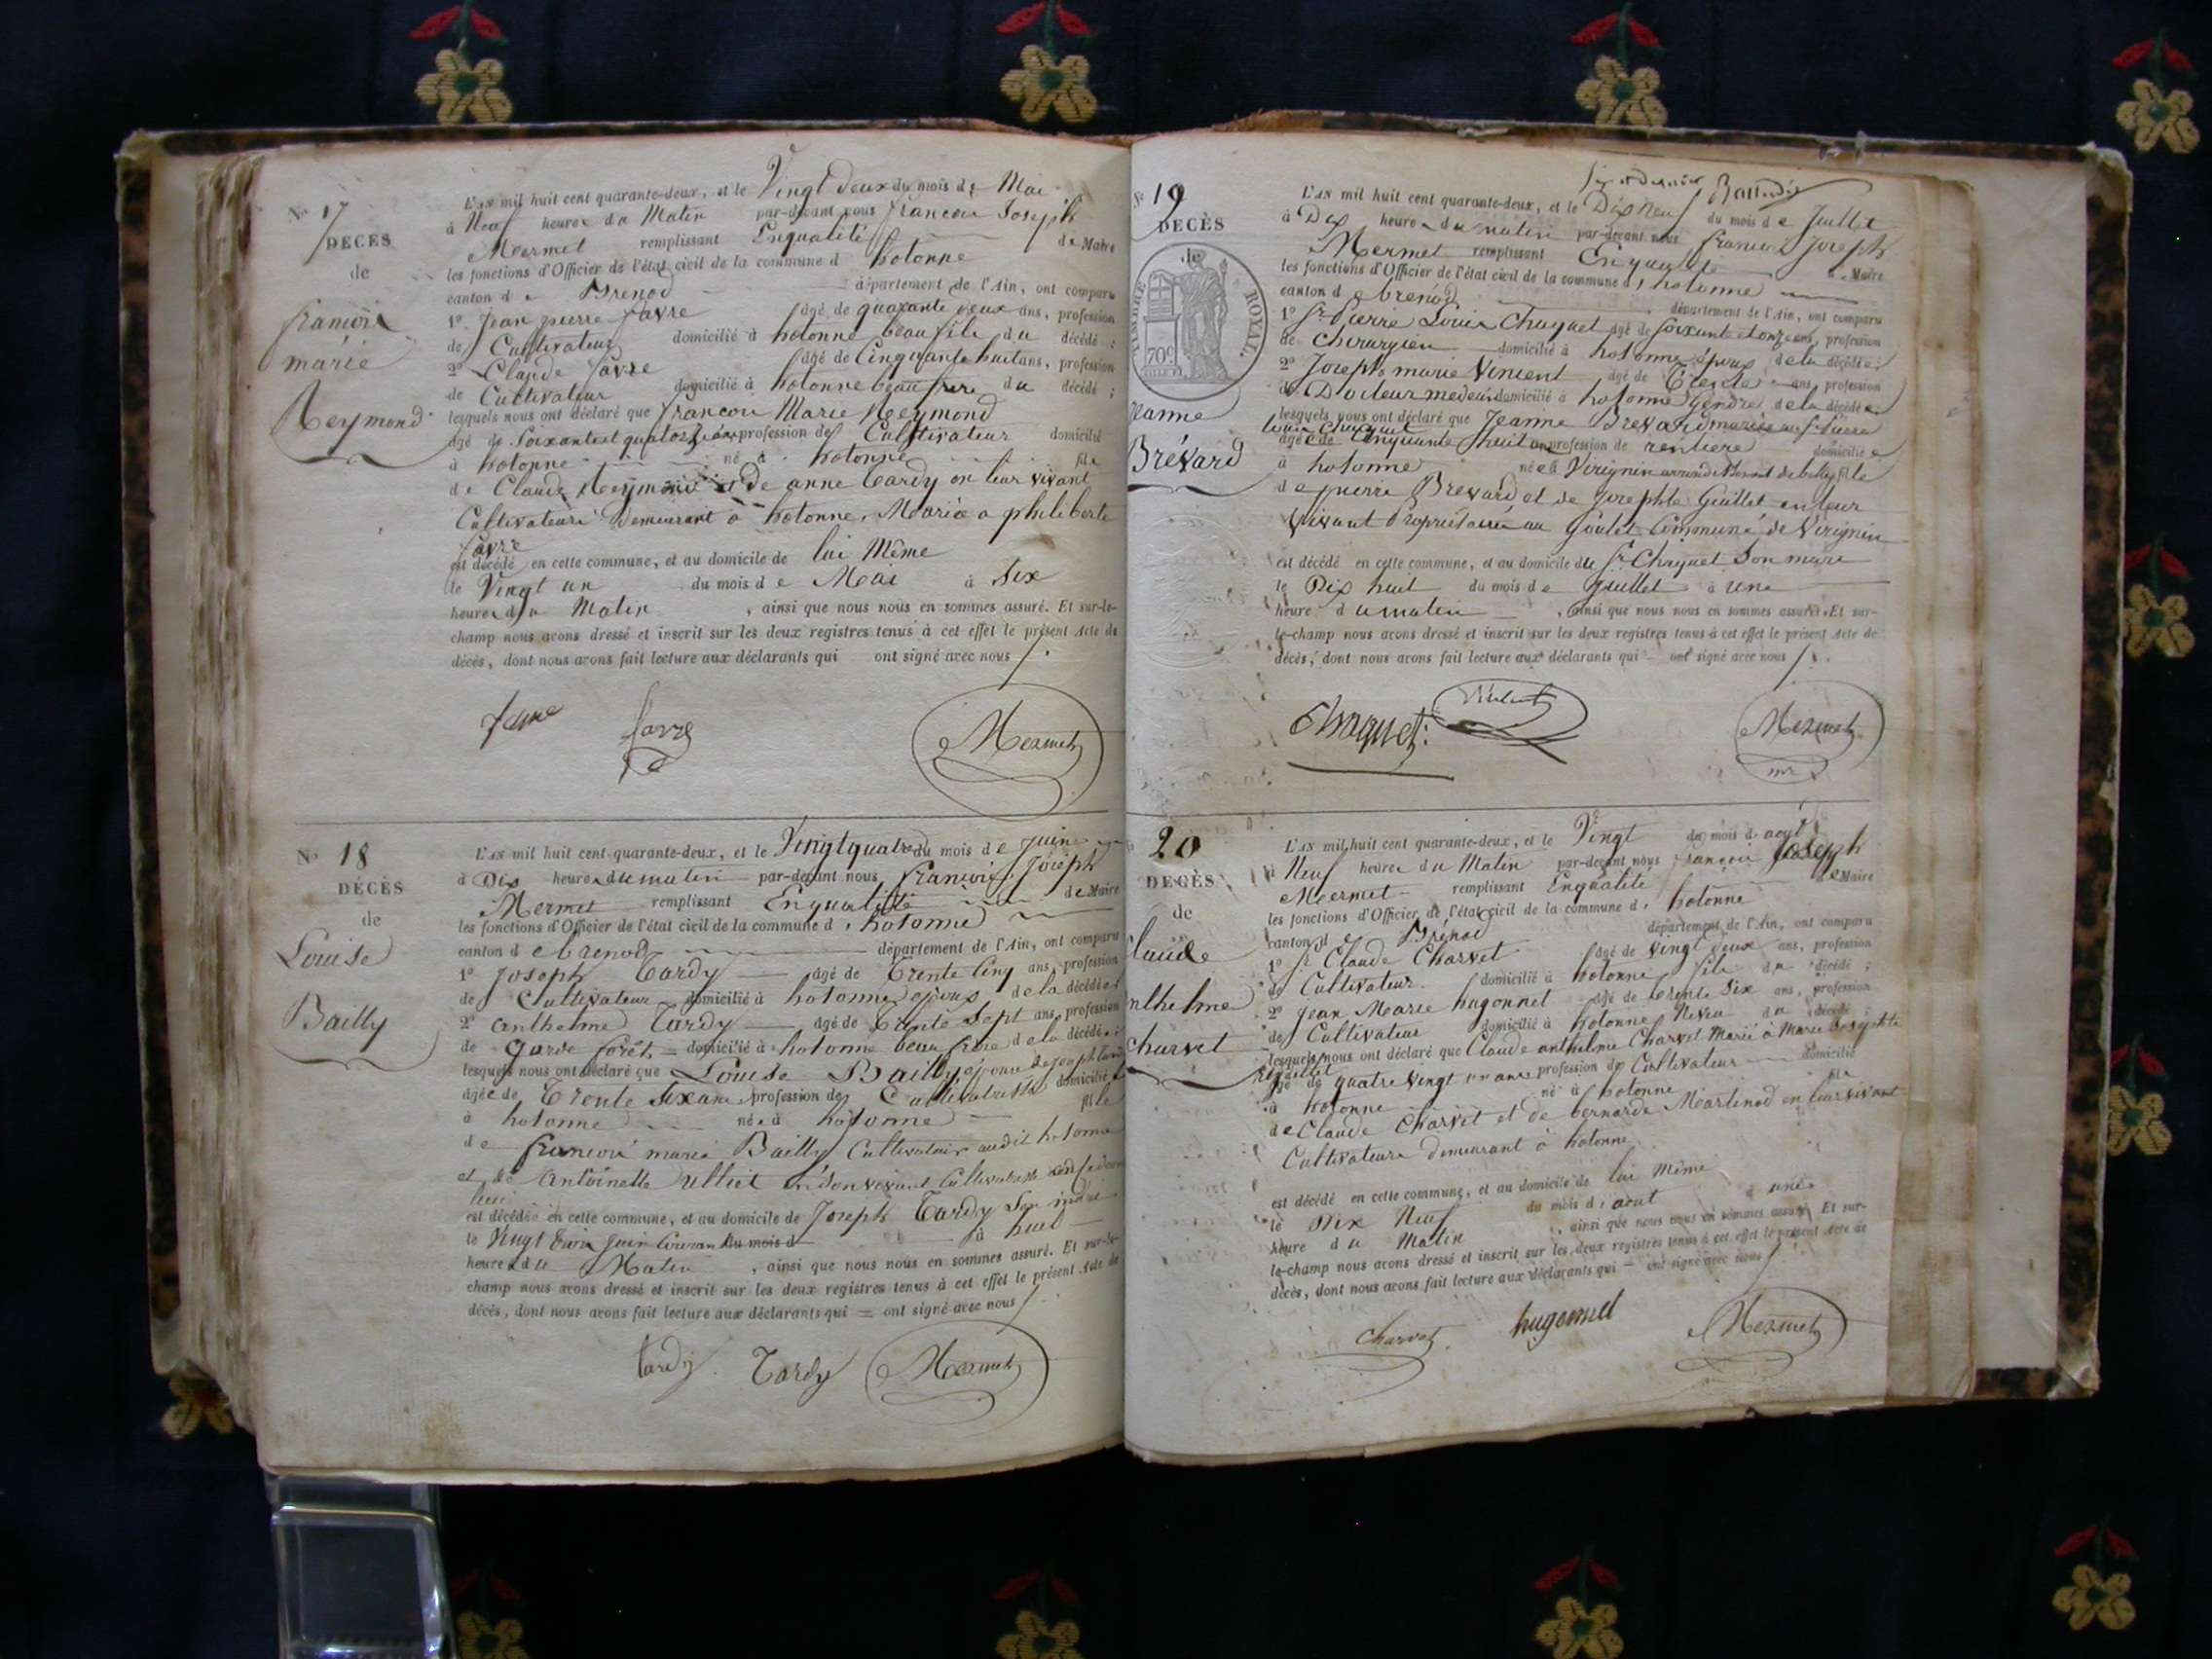 N° 17
DÉCÈS
de
françois
marie
Reymond
L'AN mil huit cent quarante-deux, et le Vingt deux du mois de Mai
à Neuf heures du Matin par-devant nous françois Joseph
Mermet remplissant Enqualité de Maire
les fonctions d'Officier de l'état civil de la commune d hotonne
canton de Brenod département de l'Ain, ont comparu
1° Jean pierre favre âgé de quarante deux ans, profession
de Cultivateur domicilié à hotonne beau fils du décédé ;
2° Claude favre âgé de Cinquante huit ans, profession
de Cultivateur domicilié à hotonne beau frere du décédé ;
lesquels nous ont déclaré que francois Marie Reymond
âgé de Soixante et quatorze ans profession de Cultivateur domicilié
à hotonne né à hotonne fils
de Claude Reymond et de anne tardy en leur vivant
Cultivateurs Demeurant à hotonne, Marié a philiberte
favre
est décédé en cette commune, et au domicile de lui Même
le Vingt un du mois de Mai à Six
heures du Matin , ainsi que nous nous en sommes assuré. Et sur-le-
champ nous avons dressé et inscrit sur les deux registres tenus à cet effet le présent Acte de
décès, dont nous avons fait lecture aux déclarants qui ont signé avec nous
favre Mermet
N° 18
DÉCÈS
de
Louise
Bailly
L'AN mil huit cent quarante-deux, et le Vingt quatre du mois de Juin
à Dix heures du matin par-devant nous françois Joseph
Mermet remplissant Enqualité de Maire
les fonctions d'Officier de l'état civil de la commune d' hotonne
canton de brenod département de l'Ain, ont comparu
1° Joseph Tardy âgé de Trente Cinq ans, profession
de Cultivateur domicilié à hotonne époux de la décédée
2° anthelme Tardy âgé de Trente Sept ans, profession
de garde forêt domicilié à hotonne beau frere de la décédée ;
lesquels nous ont déclaré que Louise Bailly épouse de Joseph tardy
âgée de Trente Six ans profession de Cultivatrice domiciliée
à hotonne née à hotonne fille
de francois marie Bailly Cultivateur audit hotonne
et de Antoinette ulliet en son vivant Cultivatrice
est décédée en cette commune, et au domicile de Joseph Tardy Son mari
le Vingt trois Juin Courant du mois d à huit
heures du Matin , ainsi que nous nous en sommes assuré. Et sur-le-
champ nous avons dressé et inscrit sur les deux registres tenus à cet effet le présent Acte de
décès, dont nous avons fait lecture aux déclarants qui ont signé avec nous
tardy Tardy Mermet
N° 19
DÉCÈS
de
TIMBRE ROYAL.
70c
Jeanne
Brévard
L'AN mil huit cent quarante-deux, et le Dix Neuf du mois de Juillet
à Dix heures du matin par-devant nous francois Joseph
Mermet remplissant Enqualité de Maire
les fonctions d'Officier de l'état civil de la commune d' hotonne
canton de brenod département de l'Ain, ont comparu
1° Sr Pierre Louis Chaquet âgé de Soixante et onze ans, profession
de Chirurgien domicilié à hotonne époux de la décédée ;
2° Joseph marie Vincent âgé de Trente ans, profession
de Docteur medecin domicilié à hotonne gendre de la décédée ;
lesquels nous ont déclaré que Jeanne Brevard mariée au Sr Pierre
louis Chaquet
âgée de Cinquante huit ans profession de rentiere domiciliée
à hotonne née à Virignin arrondissement de belley fille
de pierre Brevard et de Josephte Guillet en leur
Vivant Propriétaires au Goulet Commune de Virignin
est décédé en cette commune, et au domicile du Sr Chaquet Son mari
le Dix huit du mois de Juillet à une
heure du matin , ainsi que nous nous en sommes assuré. Et sur-
le-champ nous avons dressé et inscrit sur les deux registres tenus à cet effet le présent Acte de
décès, dont nous avons fait lecture aux déclarants qui ont signé avec nous
Chaquet Vincent Mermet
20
DÉCÈS
de
Claude
anthelme
Charvet
L'AN mil huit cent quarante-deux, et le Vingt du mois d' août
à Neuf heures du Matin par-devant nous françois Joseph
Mermet remplissant Enqualité de Maire
les fonctions d'Officier de l'état civil de la commune d' hotonne
canton de Brénod département de l'Ain, ont comparu
1° Sr Claude Charvet âgé de Vingt deux ans, profession
de Cultivateur domicilié à hotonne fils du décédé ;
2° Jean Marie hugonnet âgé de trente Six ans, profession
de Cultivateur domicilié à hotonne Neveu du décédé ;
lesquels nous ont déclaré que Claude anthelme Charvet Marié à Marie Josephte
âgé de quatre Vingt un ans profession de Cultivateur domicilié
à hotonne né à hotonne fils
de Claude Charvet et de bernarde Martinod en leur vivant
Cultivateurs demeurant à hotonne
est décédé en cette commune, et au domicile de lui Même
le Dix Neuf du mois d' aout à une
heure du Matin , ainsi que nous nous en sommes assuré. Et sur-
le-champ nous avons dressé et inscrit sur les deux registres tenus à cet effet le présent Acte de
décès, dont nous avons fait lecture aux déclarants qui ont signé avec nous
Charvet hugonnet Mermet